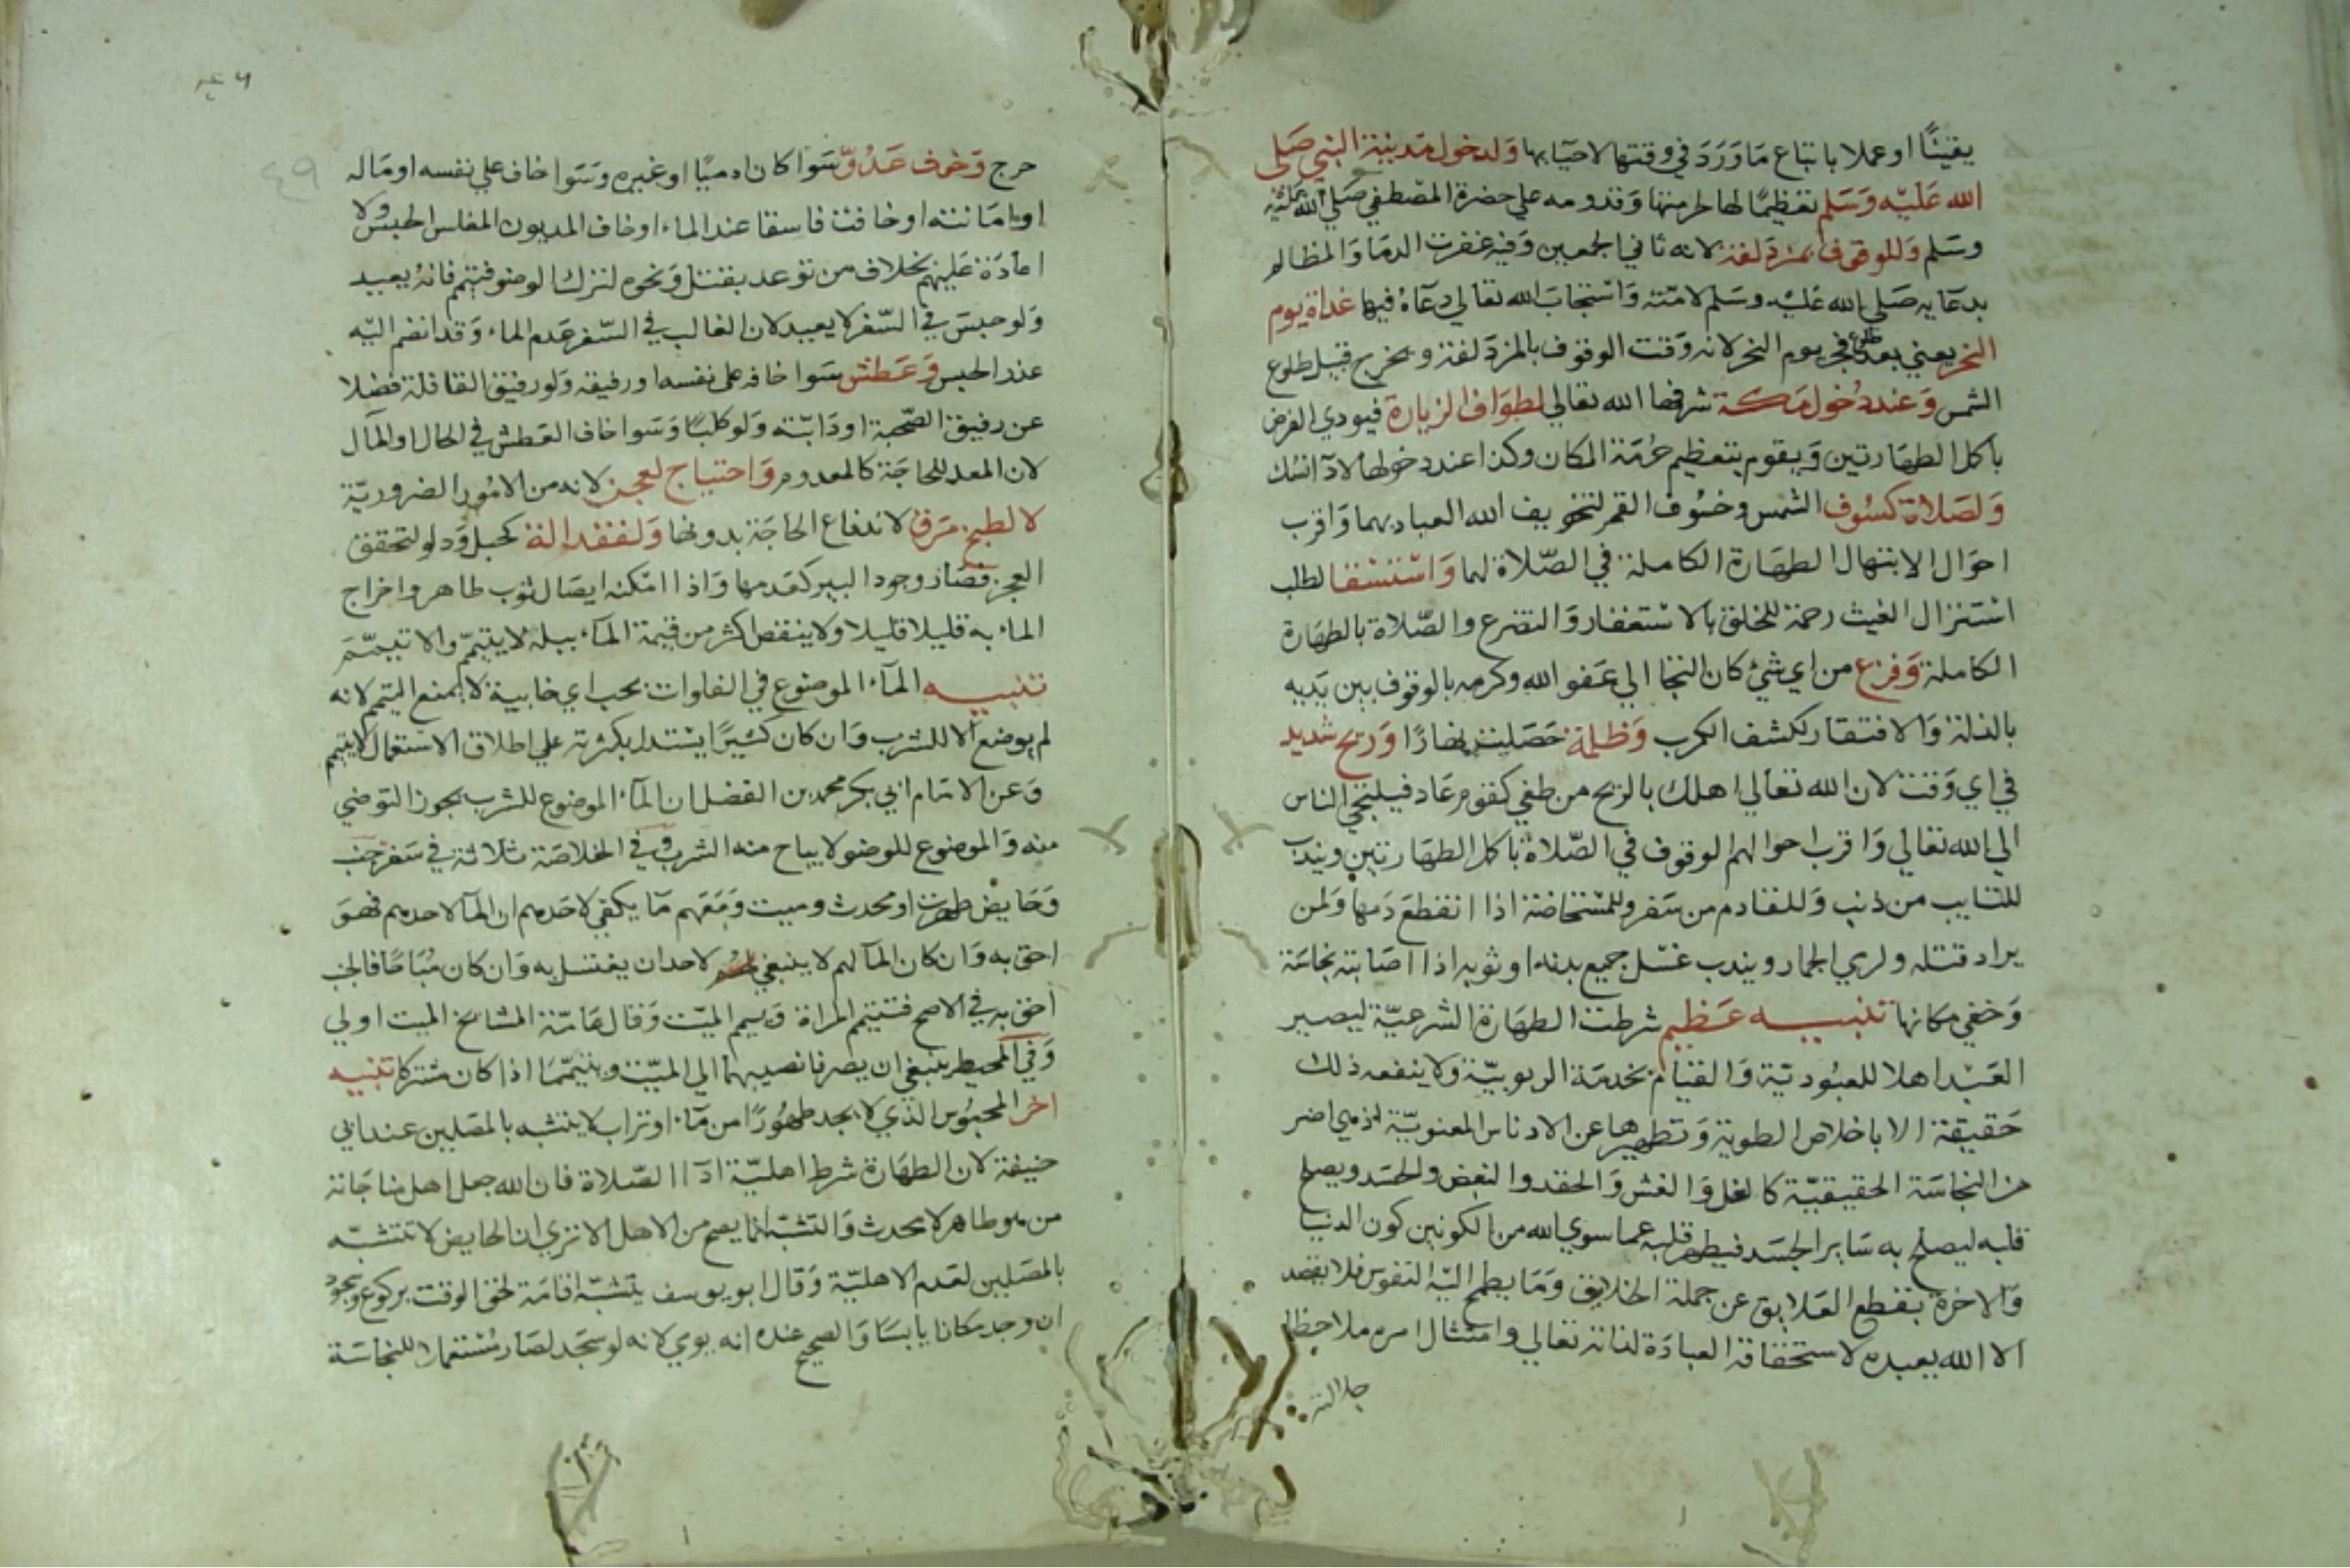 يقينًا او عملا باتباع مَا وَرَدَ في وقتها لاحيَايها وَلدخول مَدينة النبي صَلى
الله عَليْه وَسَلم تعَظيمًا لها لحرمتها وَقدومه على حضرة المصْطفي صَلي الله عَليْه
وسَلم وَللوقوف بمزدَلفة لانه ثاني الجمعين وَفيه غفرت الدمَا وَالمظالم
بدعَايه صَلي الله عَليْه وسَلم لامّته وَاسْتجابَ الله تعَالي دعَاهُ فيها غدَاة يوم
النحر يعني بعد طلوع فجر يوم النحر لانه وَقت الوقوف بالمزدَلفة ويخرج قبيل طلوع
الشمس وَعند دُخول مَكة شرفها الله تعَالي لطوَاف الزيارة فيودي الفرض
باكمل الطهَارتين وَيقوم بتعظيم حُرمَة المكان وكذا عند دخولها لادآ النسك
وَلصَلاة كسُوف الشمس وخسُوف القمر لتخويف الله العباد بهما وَاقرب
احوَال الابتهال الطهَارة الكاملة في الصّلاة لهما وَاسْتسْقا لطلب
اسْتنزال الغيث رحمة للخلق بالاسْتغفار وَالتضرع والصّلاة بالطهَارة
الكاملة وَفزع من اي شيْ كان التجَا الي عَفو الله وكرمه بالوقوف بين يَديه
بالذلة وَالافتقار لكشف الكرب وَظلمة حَصَلت نهارًا وَريح شديد
في اي وَقت لان الله تعَالي اهلك بالريح من طغي كقوم عَاد فيلتجي الناس
الي الله تعَالي وَاقرب احوالهم الوقوف في الصّلاة باكمل الطهَارتين ويندب
للتايب من ذنب وَللقادم من سَفر وللمسْتحَاضة اذا انقطعَ دَمها وَلمن
يراد قتله ولرمي الجمار ويندب غسْل جميع بدنه او ثوبه اذا اصَابته نجاسَة
وَخفي مكانها تنبيه عَظيم شرطت الطهَارة الشرعيّة ليصير
العَبْد اهلا للعبُوديّة وَالقيام بخدمَة الربوبيّة ولا ينفعه ذلك
حَقيقة الا باخلاص الطوية وَتطهيرها عن الادناس المعنويّة اذ هي اضر
من النجاسَة الحقيقيّة كالغل وَالغش وَالحقد والبغض والحسَد ويصلح
قلبه ليصلح به سَاير الجسَد فيطهر قلبه عما سوي الله من الكونين كون الدنيا
وَالاخرة بقطع العَلايق عن جملة الخلايق وَمَا يطمح اليْه النفوس فلا يقصد
الا الله يعبده لاستحقاقه العبادَة لذاته تعَالي وامتثال امره ملاحظا
جلالته
٤٩
حرج وَخوف عَدُوّ سَوا كان ادميًا او غيره وسَوا خاف علي نفسه او مَاله
او امَانته او خافت فاسقا عند الماء او خاف المديون المفلس الحبس ولا
اعَادَة عَليْهم بخلاف من توعد بقتل وَنحوه لترك الوضو فتيمم فانهُ يعيد
وَلو حبسَ في السّفر لا يعيد لان الغالب في السّفر عَدم الماء وَقد انضم اليْه
عذر الحبس وَعَطش سَوا خافه على نفسه او رفيقه وَلو رفيق القافلة فضلا
عن رفيق الصّحبة او دَابّته وَلو كلبًا وَسَوا خاف العَطش في الحال او المآل
لان المعد للحاجَة كالمعدوم وَاحتياج لعجن لانه من الامُور الضروريّة
لا لطبخ مَرق لاندفاع الحاجَة بدونها وَلفقد الة كحبل وَدلو لتحقق
العجز فصَار وجود البير كعَدمها وَاذا امْكنه ايصَال ثوب طاهر واخراج
الماء به قليلا قليلا ولا ينقص اكثر من قيمة المآء ببله لا يتيمّم والا تيمّمَ
تنبيه المآء الموضوع في الفلوات بحب اي خابية لا يمنع التيمم لانه
لم يوضع الا للشرب وَان كان كثيرًا يسْتدل بكثرته علي اطلاق الاسْتعمال لا يتيمم
وَعن الامَام ابي بكر محمد بن الفضل ان المآء الموضوع للشرب يجوز التوضي
منه وَالموضوع للوضو لا يباح منه الشرب وفي الخلاصَة ثلاثة في سَفر جنب
وَحَايض طهرت او محدث وميت وَمَعَهم مَا يكفي لاحَدهم ان المآ لاحدهم فهوَ
احق به وَان كان المآ لهم لا ينبغي لاحد ان يغتسل به وَان كان مُبَاحًا فالجنب
احق به في الاصح فتتيمم المراة وَييمم الميّت وَقال عَامّة المشايخ الميت اولي
وَفي المحيط ينبغي ان يصرفا نصيبهما الي الميّت ويتيمّمَا اذا كان مشتركا تنبيه
اخر المحبُوس الذي لا يجد طهُورًا من مَآء او تراب لا يتشبه بالمصَلين عند ابي
حنيفة لان الطهَارة شرط اهليّة ادَآ الصّلاة فان الله جعل اهل مناجَاته
من هو طاهر لا محدث وَالتشبّه انما يصح من الاهل الا تري ان الحايض لا تتشبّه
بالمصَلين لعَدم الاهليّة وَقال ابو يوسف يتشبّه اقامَة لحق الوقت بركوع وسجود
ان وجد مكانا يابسًا وَالصحيح عنده انه يومي لانه لو سجَد لصَار مُسْتعملا للنجاسَة